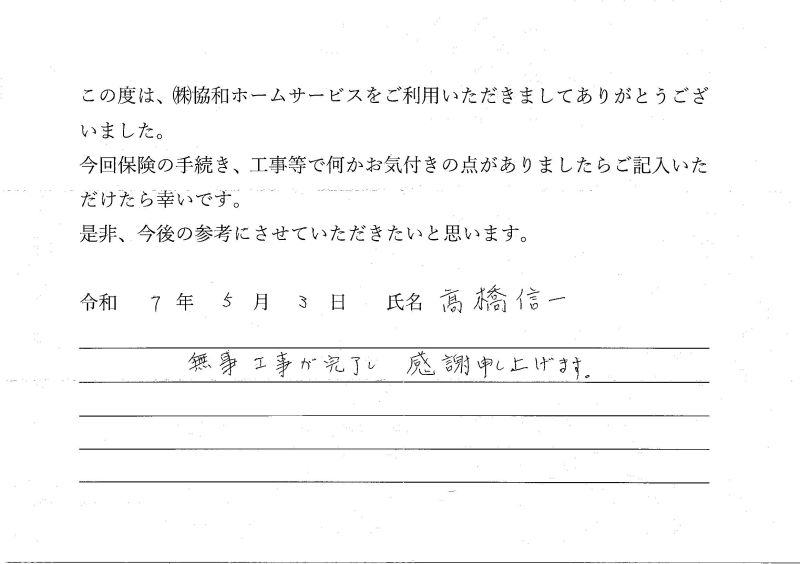 この度は、㈱協和ホームサービスをご利用いただきましてありがとうござ
いました。
今回保険の手続き、工事等で何かお気付きの点がありましたらご記入いた
だけたら幸いです。
是非、今後の参考にさせていただきたいと思います。
令和 7 年 5 月 3 日 氏名 高橋信一
無事工事が完了し 感謝申し上げます。